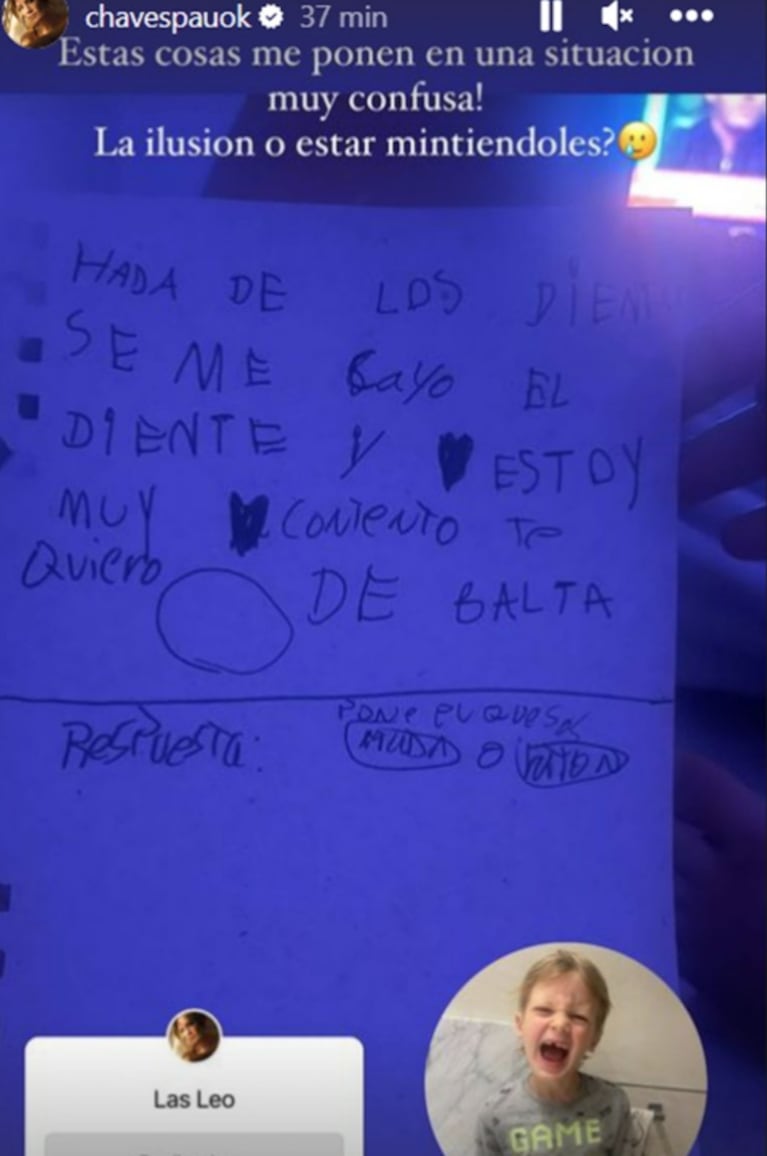 chavespauok 37 min
Estas cosas me ponen en una situacion
muy confusa!
La ilusion o estar mintiendoles?🥲
HADA DE LOS DIEN
SE ME CAYO EL
DIENTE Y ♥ ESTOY
MUY ♥ CONTENTO Te
Quiero DE BALTA
RESPUESTA: PONE EL QUE SeA
HADA O RATON
Las Leo
GAME